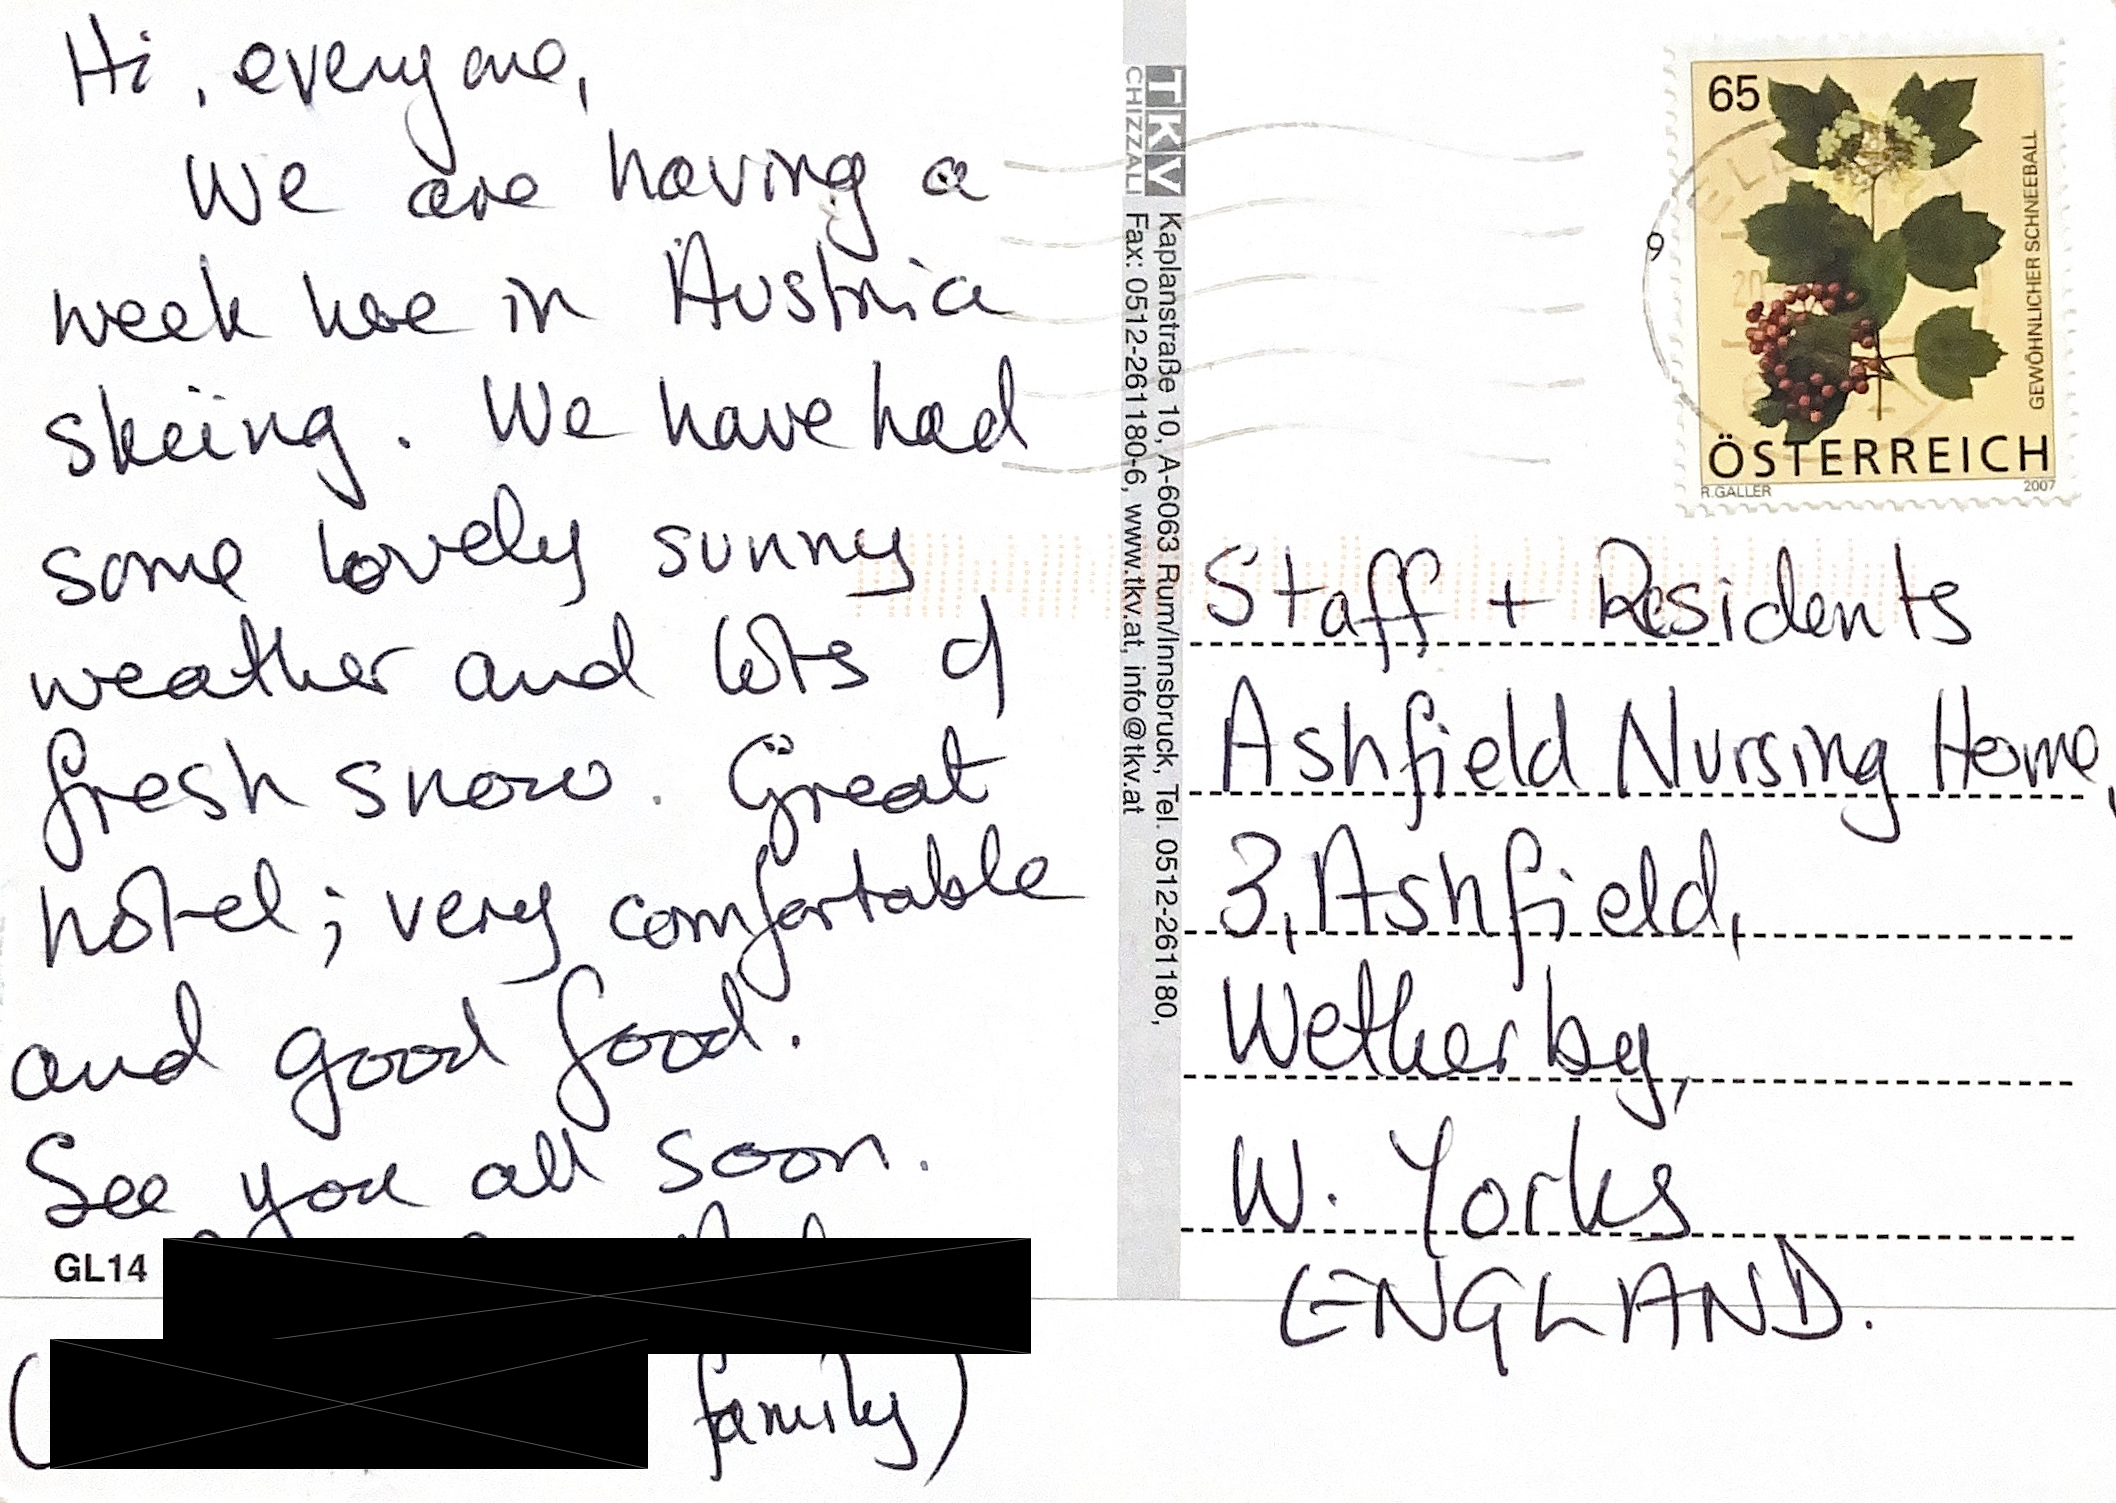 Hi, everyone,
We are having a
week here in Austria
skiing. We have had
some lovely sunny
weather and lots of
fresh snow. Great
hotel; very comfortable
and good food.
See you all soon.
GL14
( family)
TKV
CHIZZALI
Kaplanstraße 10, A-6063 Rum/Innsbruck, Tel. 0512-261180,
Fax: 0512-261180-6, www.tkv.at, info@tkv.at
65
GEWÖHNLICHER SCHNEEBALL
ÖSTERREICH
R.GALLER 2007
Staff + Residents
Ashfield Nursing Home,
3, Ashfield,
Wetherby,
W. Yorks
ENGLAND.